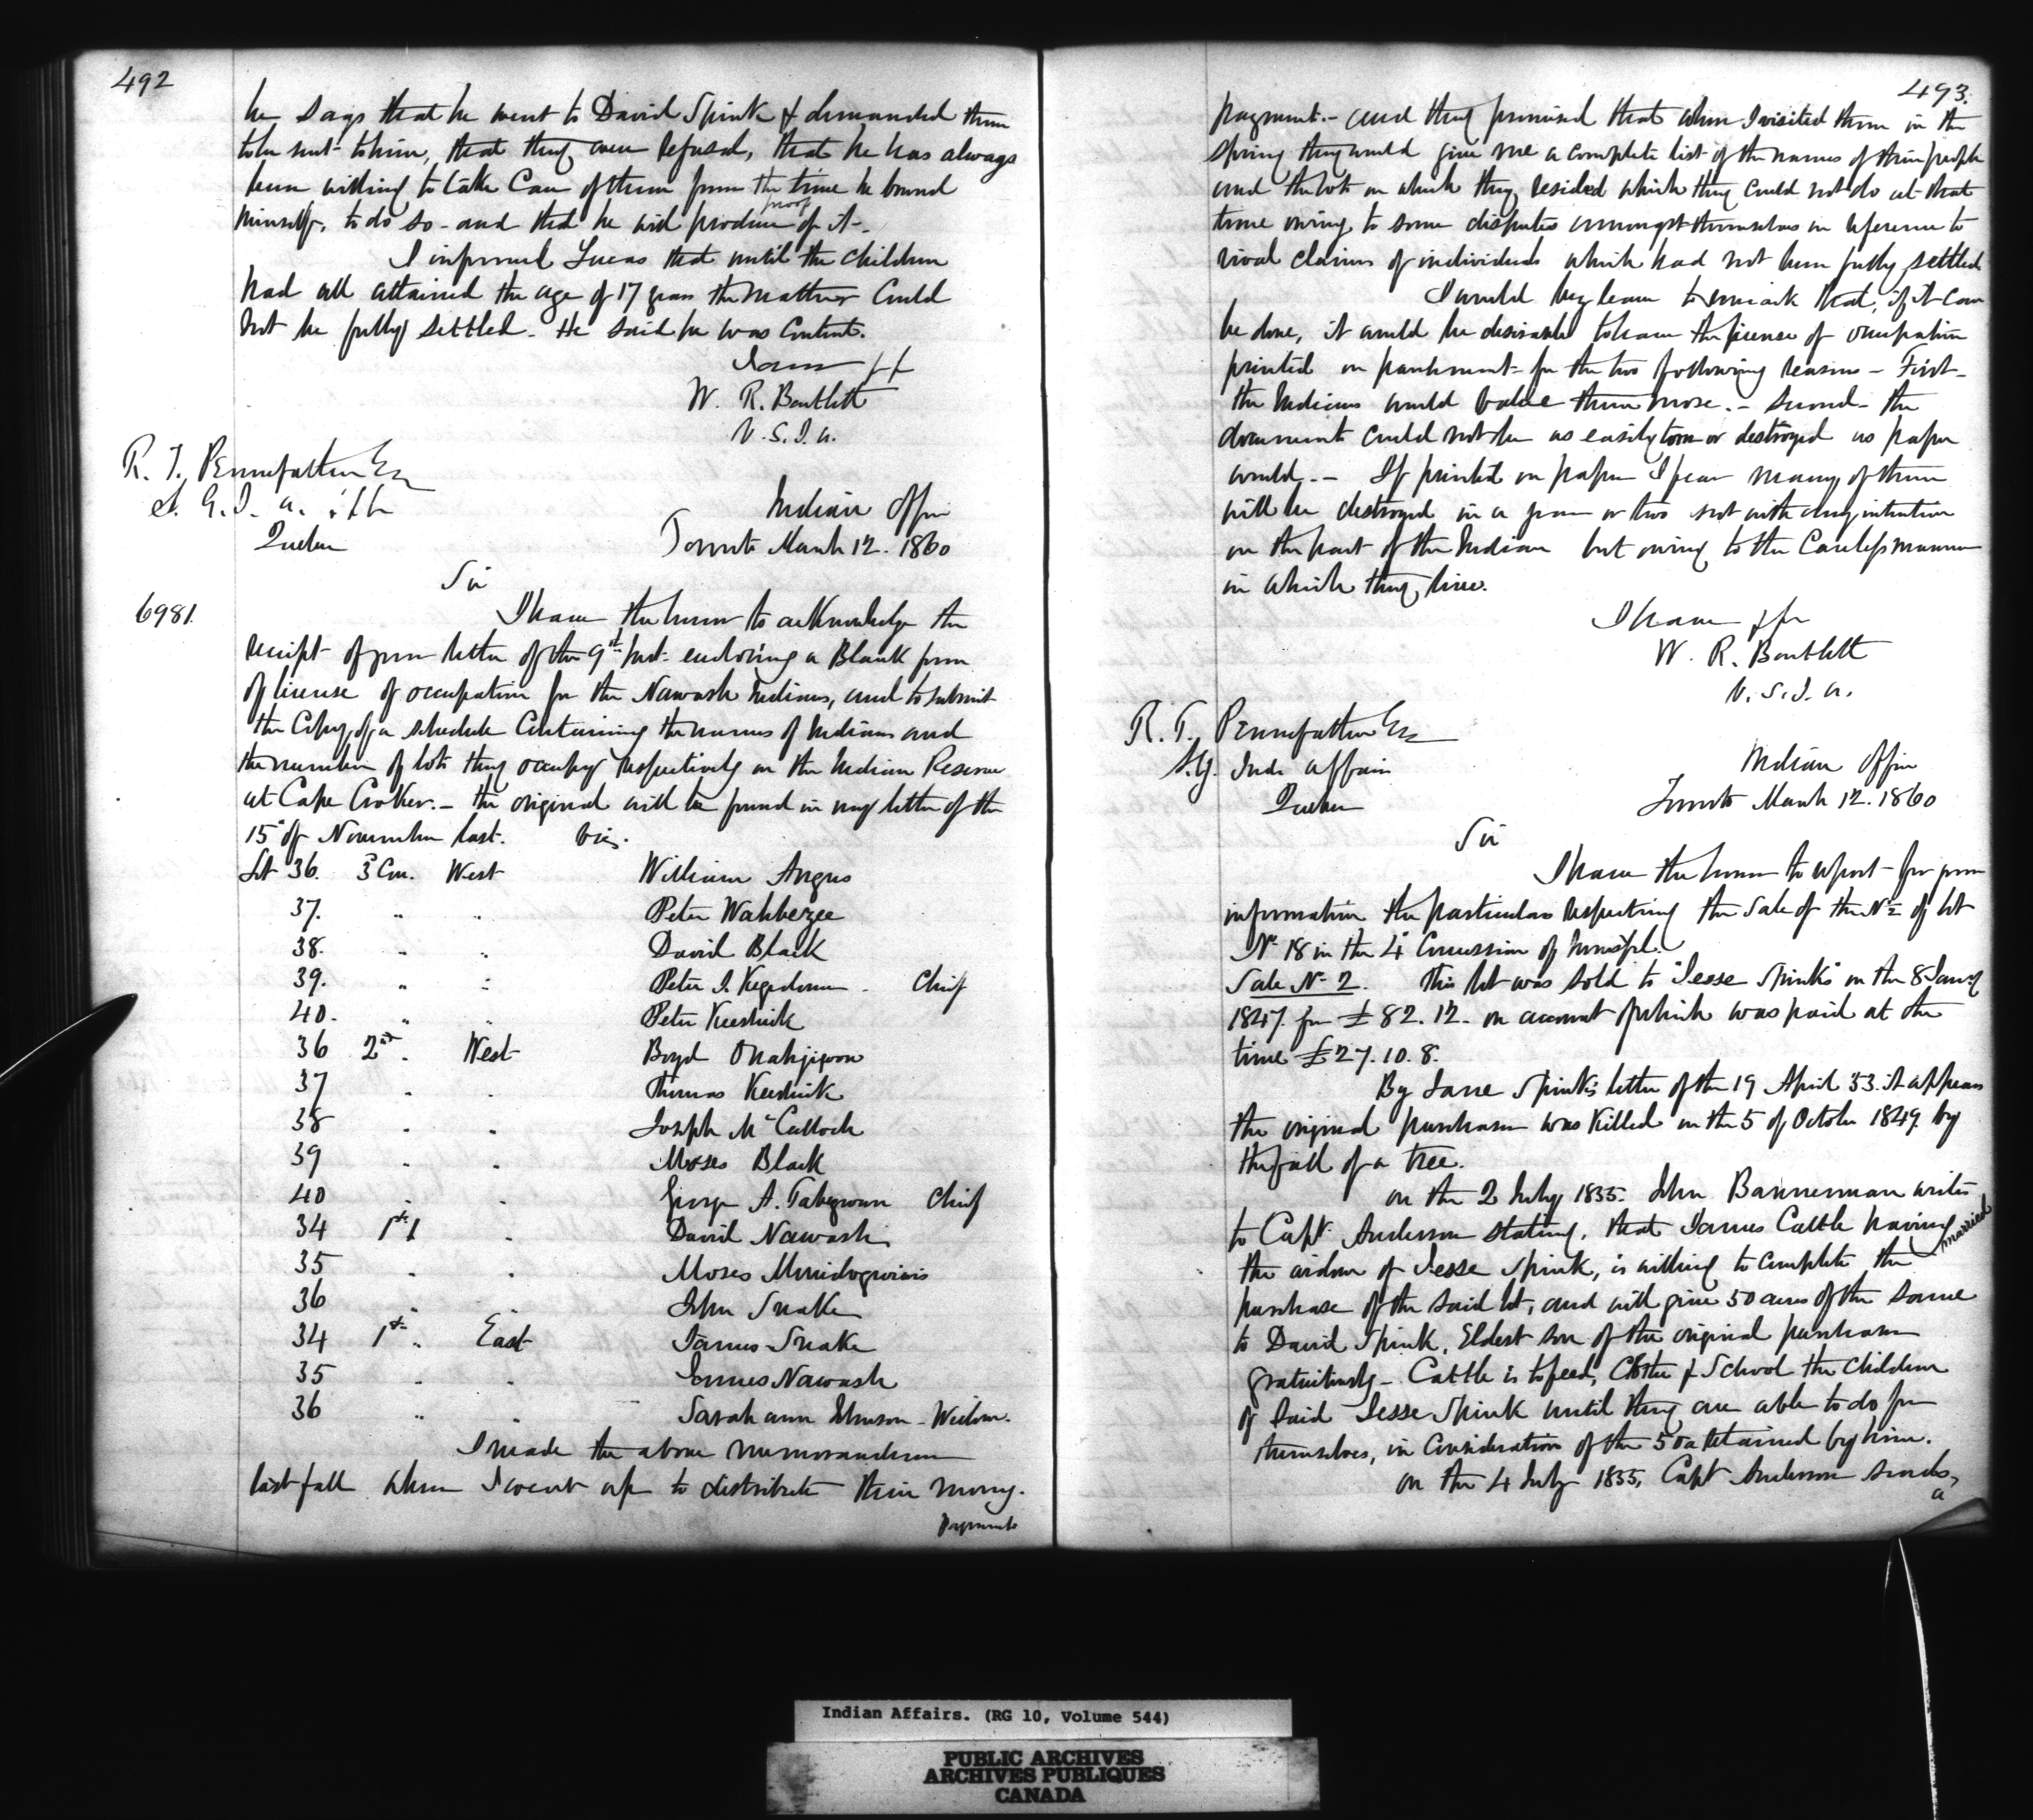 492
he says that he went to David Spink & demanded them
to be sent to him, that they were refused, that he has always
been willing to take care of them from the time he bound
himself, to do so - and that he will produce proof of it -.
I informed Lucas that until the children
had all attained the age of 17 years the matter could
not be fully settled. He said he was content.
W. R. Bartlett
V. S. I. A.
R. T. Pennefather Esq
S. G. I. A. &c
Quebec
Indian Office
Toronto March 12. 1860
Sir
6981.
I have the honor to acknowledge the
receipt of your letter of the 9th Inst. enclosing a Blank form
of license of occupation for the Nawash Indians, and to submit
the Copy of a schedule containing the names of Indians and
the number of lots they occupy respectively on the Indian Reserve
at Cape Croker. - the original will be found in my letter of the
15" of November last. viz.
Lot 36. 3d Con. West William Angus
37. " " Peter Wahbezee
38. " " David Black
39. " " Peter J. Kegedonce. Chief
40. " " Peter Keeshick
36 2nd " West Boyd Onahjiwon
37 " " Thomas Keeshick
38 " " Joseph McCulloch
39 " " Moses Black
40 " " George A. Tabegwun Chief
34 1st " David Nawash
35 " " Moses
36 " " John Snake
34 1st " East James Snake
35 " " James Nawash
36 " " Sarah ann Johnson - Widow.
I made the above memorandum
last fall when I went up to distribute their money.
payments
493.
payment. - and they promised that when I visited them in the
spring they would give me a complete list of the names of their people
and the lots on which they resided which they could not do at that
time owing to some disputes amongst themselves in reference to
rival claims of individuals which had not been fully settled
I would beg leave to remark that, if it can
be done, it would be desirable to have the license of occupation
printed on parchment for the two following reasons - First -
the Indians would value them more. - Second - the
documents could not be as easily torn or destroyed as paper
would. - If printed on paper I fear many of them
will be destroyed in a year or two not with any intention
on the part of the Indian but owing to the Careless manner
in which they live.
I have &c
W. R. Bartlett
V. S. I. A.
R. T. Pennefather Esq
S. G. Ind. Affairs
Quebec
Indian Office
Toronto March 12. 1860
Sir
I have the honor to report - for your
information the particulars respecting the Sale of the N½ of lot
No 18 in the 4" Concession of
Sale No 2. This lot was sold to "Jesse Spink" on the 8 Jany
1847. for £82.12. on account of which was paid at the
time £27.10.8.
By Jane Spink's letter of the 19 April 53. it appears
the original purchaser was killed on the 5 of October 1849. by
the fall of a tree.
on the 2 July 1855. John Bannerman writes
to Capt. Anderson stating, that James Cattle having married
the widow of Jesse Spink, is willing to complete the
purchase of the said lot, and will give 50 acres of the same
to David Spink, Eldest son of the original purchaser
gratuitously - Cattle is to feed, Clothe & School the Children
of Said Jesse Spink until they are able to do for
themselves, in Consideration of the 50a retained by him.
on the 4 July 1855, Capt Anderson sends,
a
Indian Affairs. (RG 10, Volume 544)
PUBLIC ARCHIVES
ARCHIVES PUBLIQUES
CANADA